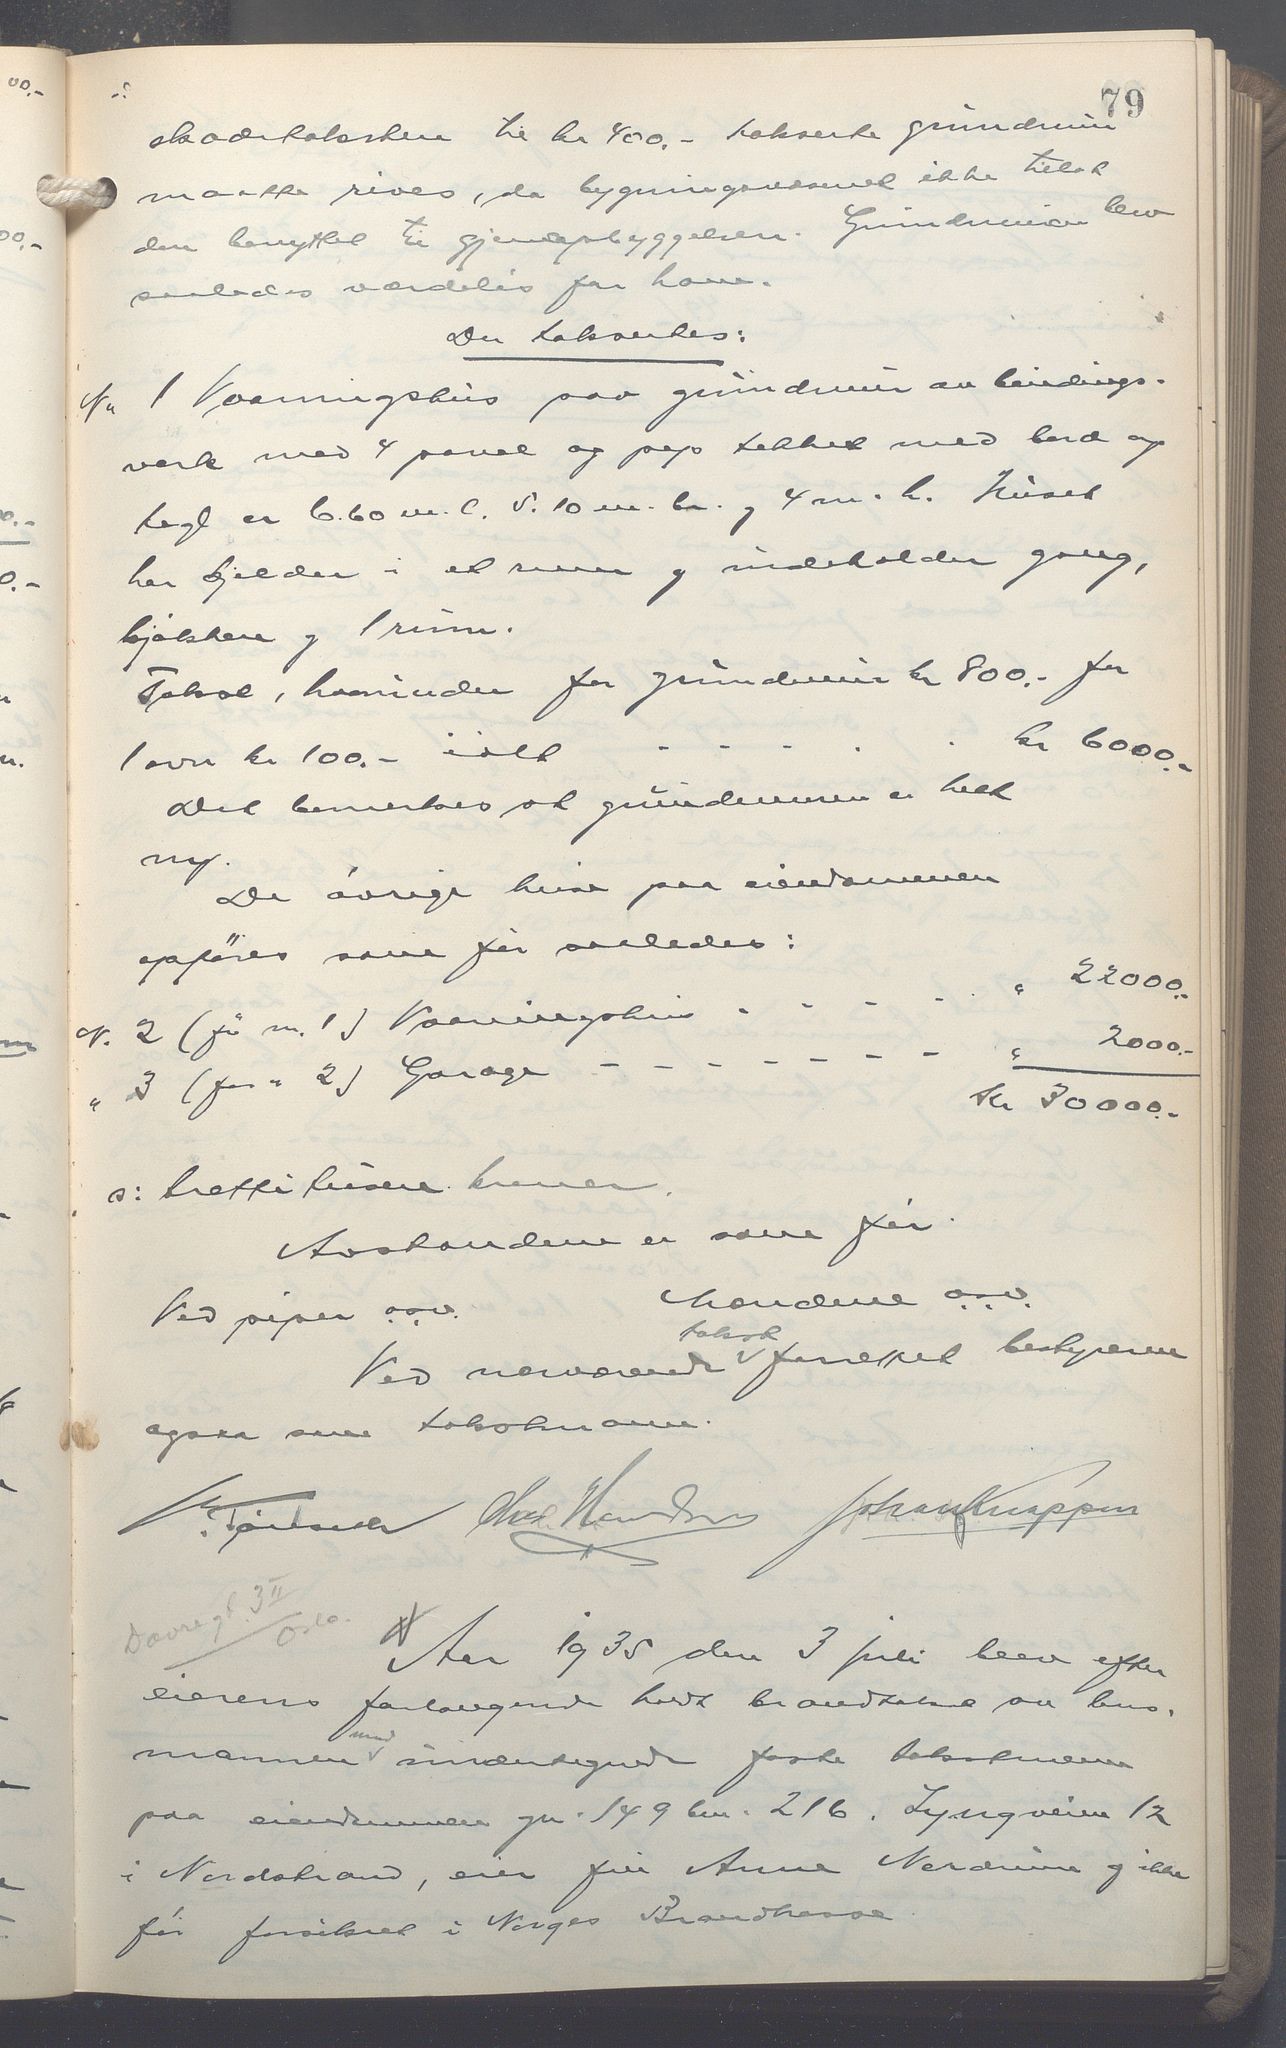 79
skadetaksten til kr 400.- takserte grundmur
maatte rives, da bygningsvæsenet ikke tillot
den benyttet til gjenopbyggelsen. Grundmuren blev
saaledes værdeløs for ham.
Der taksertes:
No 1 Vaaningshus paa grundmur av bindings-
verk med 4 panel og pap tekket med bord og
tegl er 6.60 m. l. 5.10 m. br. og 4 m. h. Huset
har kjelder i et rum og indeholder gang,
kjøkken og 1 rum.
Takst, hvorunder for grundmur kr 800.- for
1 ovn kr 100.- ialt - - - - - kr 6000.-
Det bemerkes at grundmuren er helt
ny.
De øvrige huse paa eiendommen
opføres som før saaledes:
N. 2 (før nr. 1) Vaaningshus - - - - - " 22000.-
" 3 (før " 2) Garage - - - - - - - " 2000.-
Kr 30000.-
s: tretti tusen kroner.
Avstandene er som før.
Ved piper o.s.v. Mændene o.s.v.
Ved nærværende takst forrettet bestyreren
ogsaa som takstmann.
Johan Knappen
Dovregt. 3 II
Oslo.
Aar 1935 den 3 juli blev efter
eierens forlangende holdt brandtakst av lens-
mannen med undertegnede faste takstmenn
paa eiendommen gn. 149 bn. 216. Lyngveien 12
i Nordstrand, eier fru Anne Nordrum og ikke
før forsikret i Norges Brandkasse